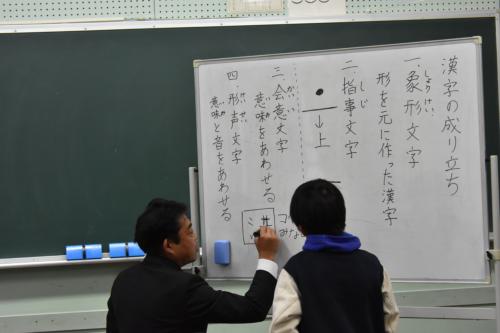 漢字の成り立ち
一.象形文字
しょうけい
形を元に作った漢字
二.指事文字
しじ
↓上
三.会意文字
かいい
意味をあわせる
四.形声文字
けいせい
意味と音をあわせる